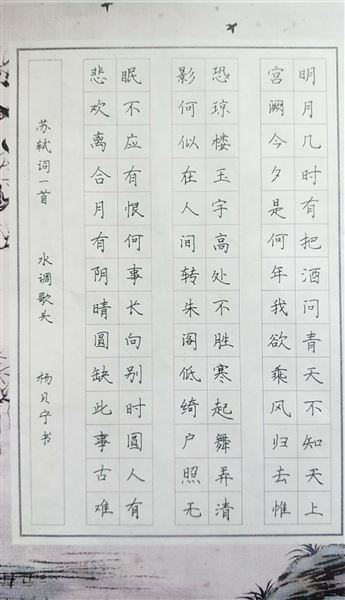 明月几时有把酒问青天不知天上
宫阙今夕是何年我欲乘风归去惟
恐琼楼玉宇高处不胜寒起舞弄清
影何似在人间转朱阁低绮户照无
眠不应有恨何事长向别时圆人有
悲欢离合月有阴晴圆缺此事古难
苏轼词一首 水调歌头 杨贝宁书